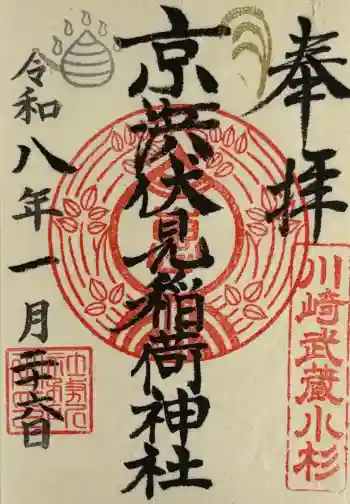 奉拝
川崎武蔵小杉
京濱伏見稲荷神社
令和八年一月二十六日